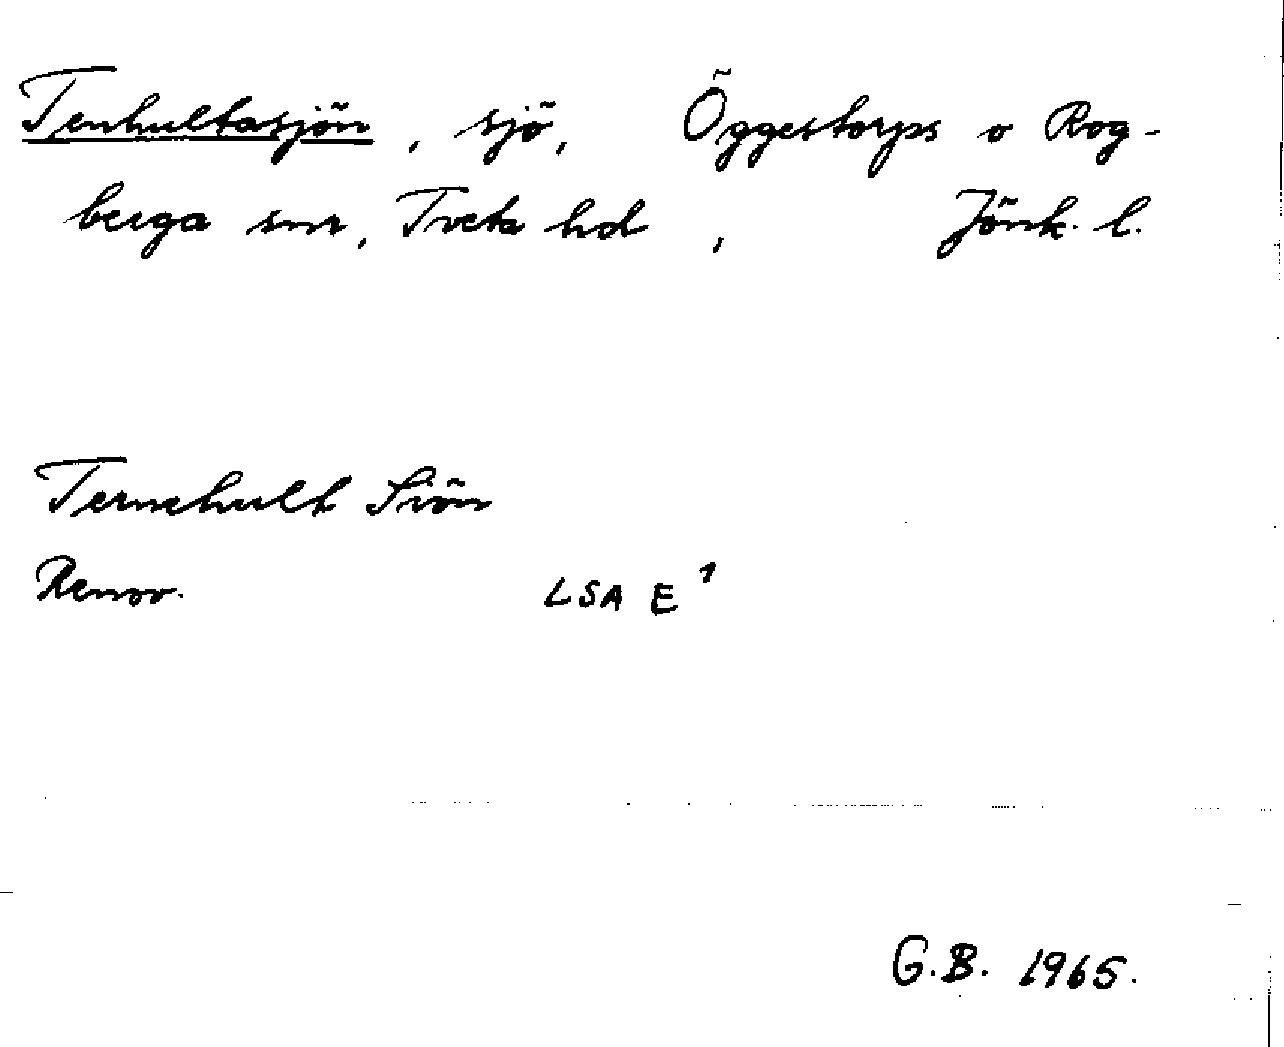 Tenhultasjön, sjö, Öggestorps o Rog-
berga snr, Tveta hd, Jönk. l.
Ternehult Siön
Renov. LSA E 1
G.B. 1965.